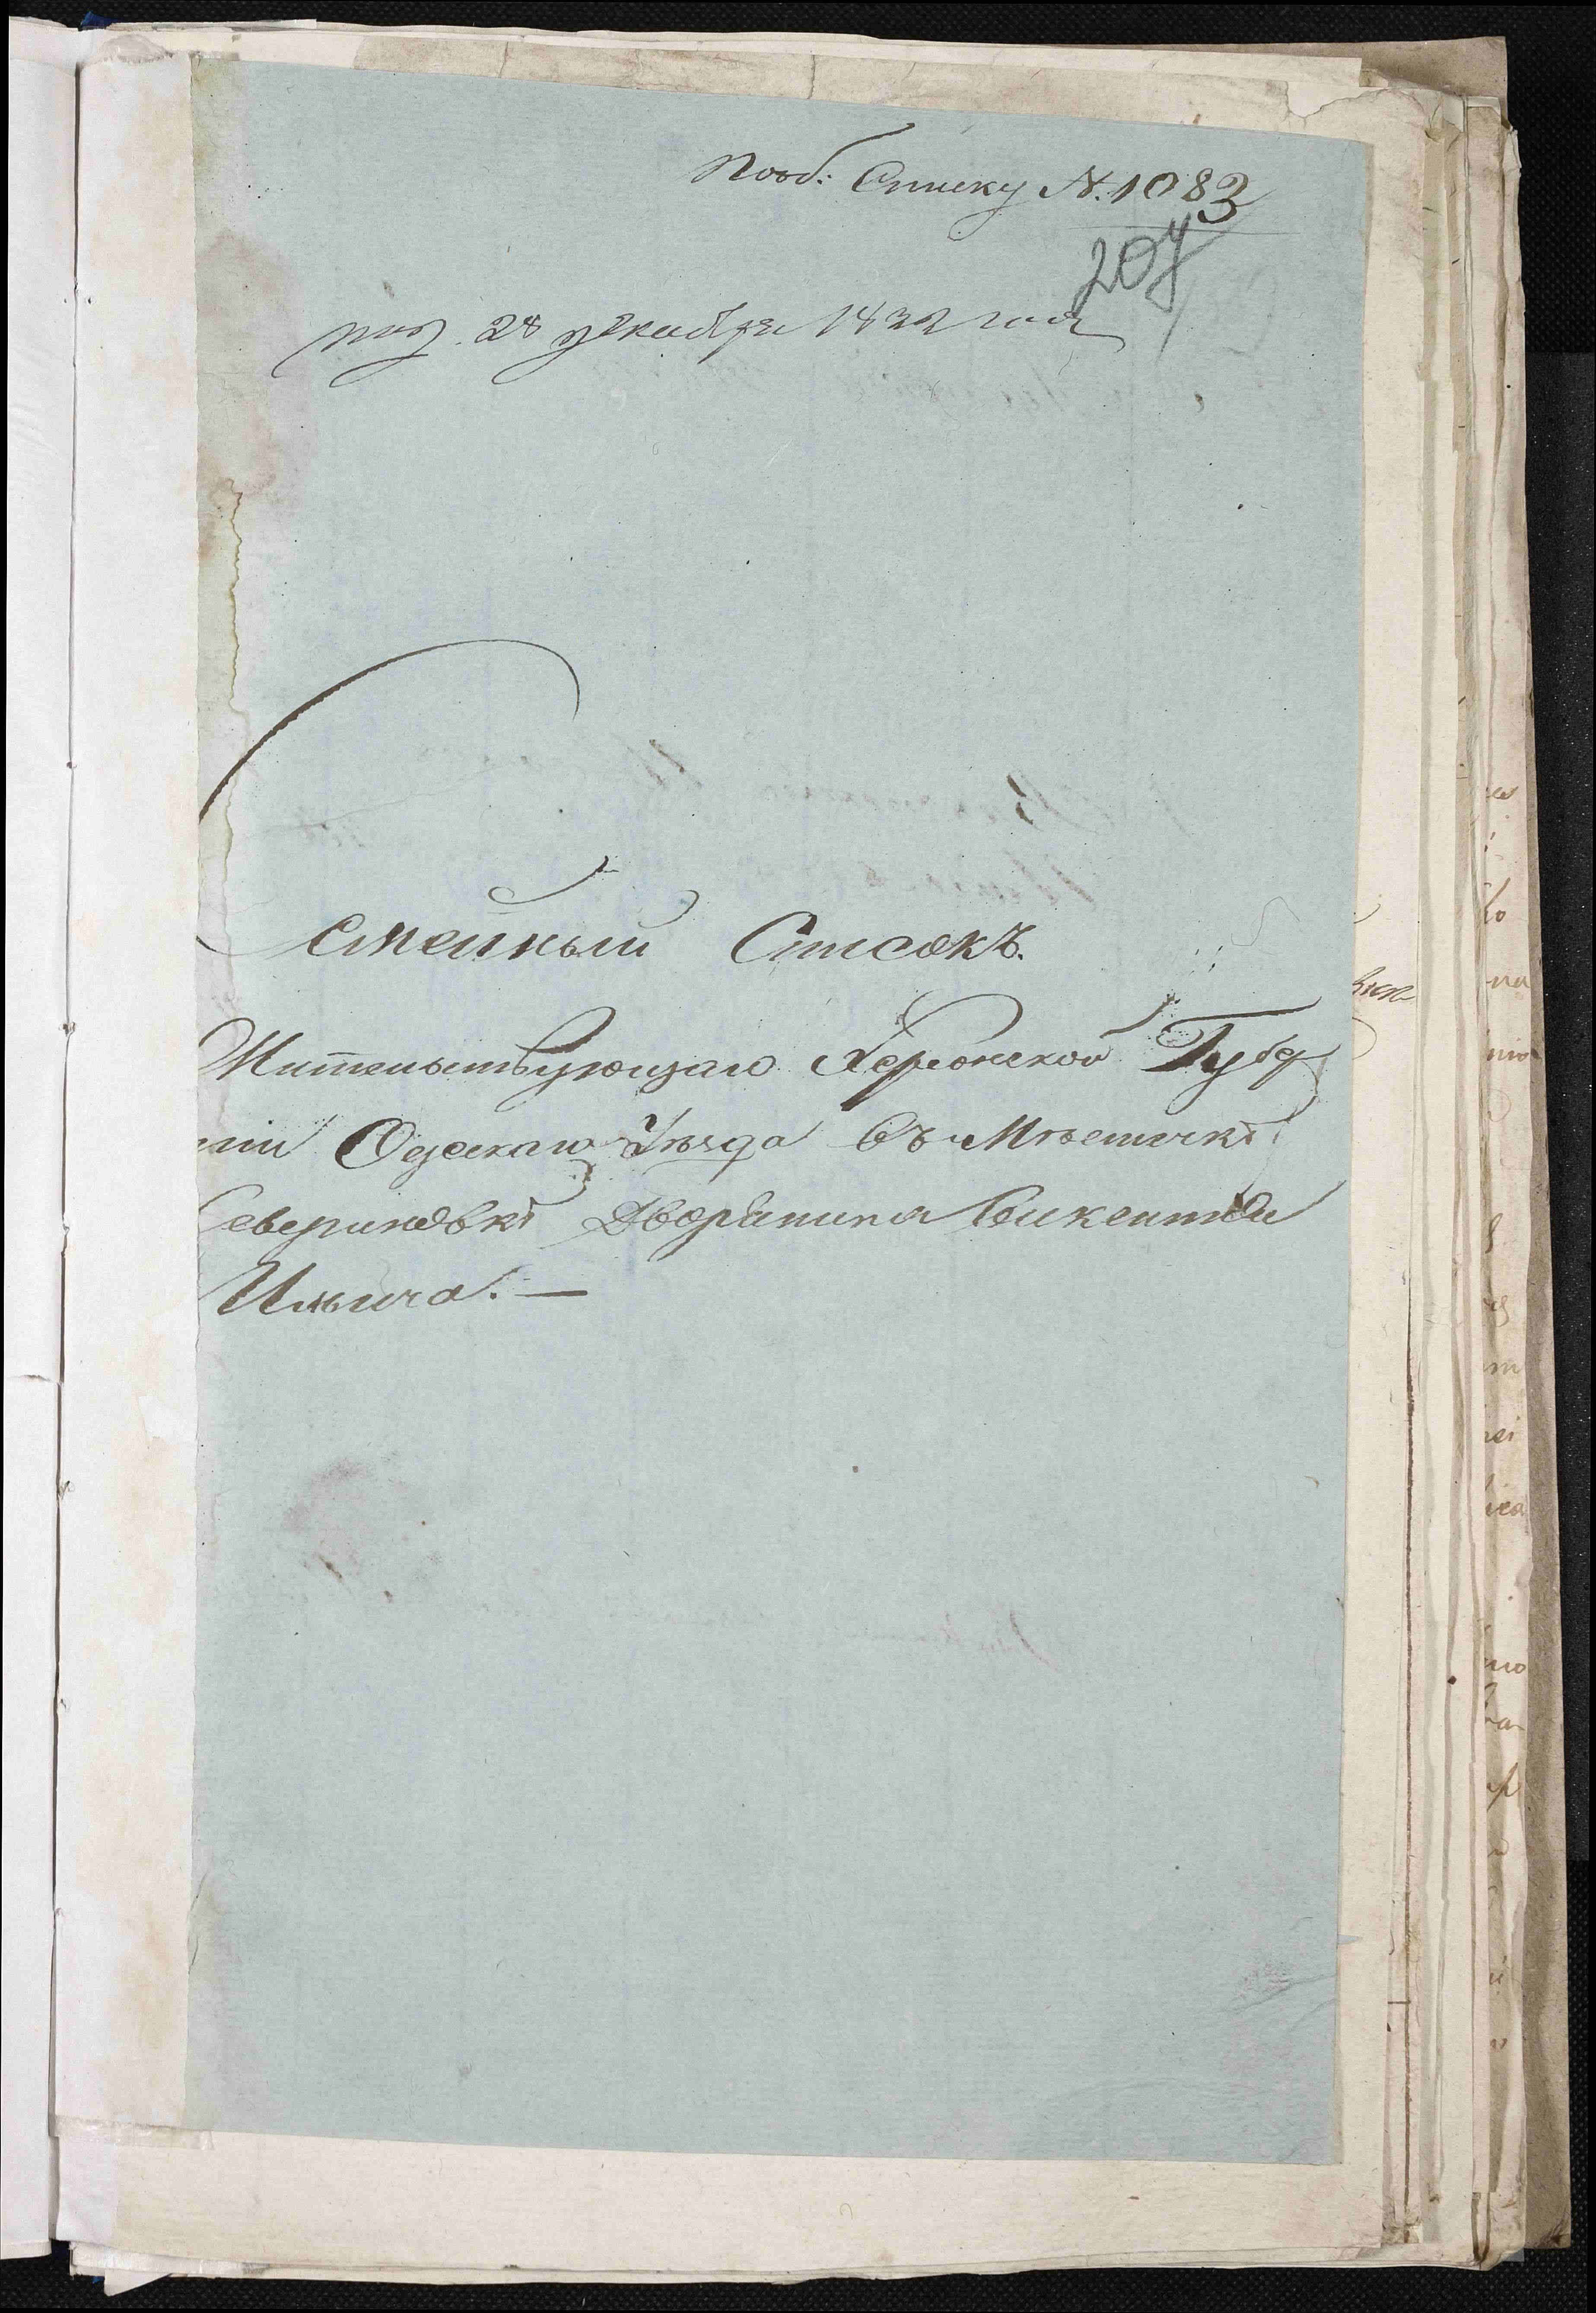 Пооб: Списку N. 1083
207
под. 28 декабря 1832 года
Семейный Списокъ.
Жительствующаго Херсонской Губер
ніи Одескаго Уѣзда въ Мѣстечкѣ
Севериновкѣ Дворянина Викентия
Ильича. —